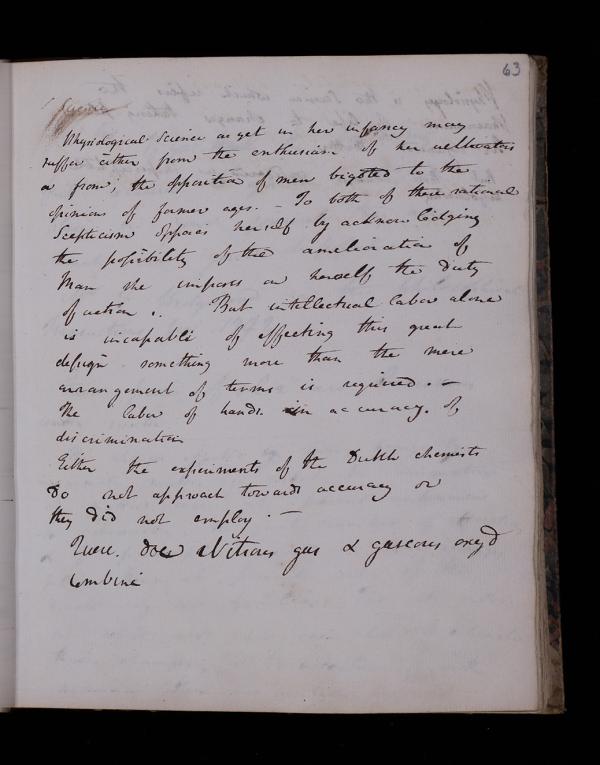 63
Science
Physiological Science as yet in her infancy may
suffer either from the enthusiasm of her cultivators
or from, the opposition of men bigoted to the
opinions of former ages. - To both of these rational
Scepticism opposes herself by acknowledging
the possibility of the amelioration of
Man she imposes on herself the duty
of action .. But intellectual labor alone
is incapable of effecting this great
design something more than the mere
arrangement of terms is required. -
The labor of hands in accuracy. of
discrimination
Either the experiments of the Dutch chemists
do not approach towards accuracy or
they did not employ. -
Quere. does Nitrous gas & gaseous oxyd
combine